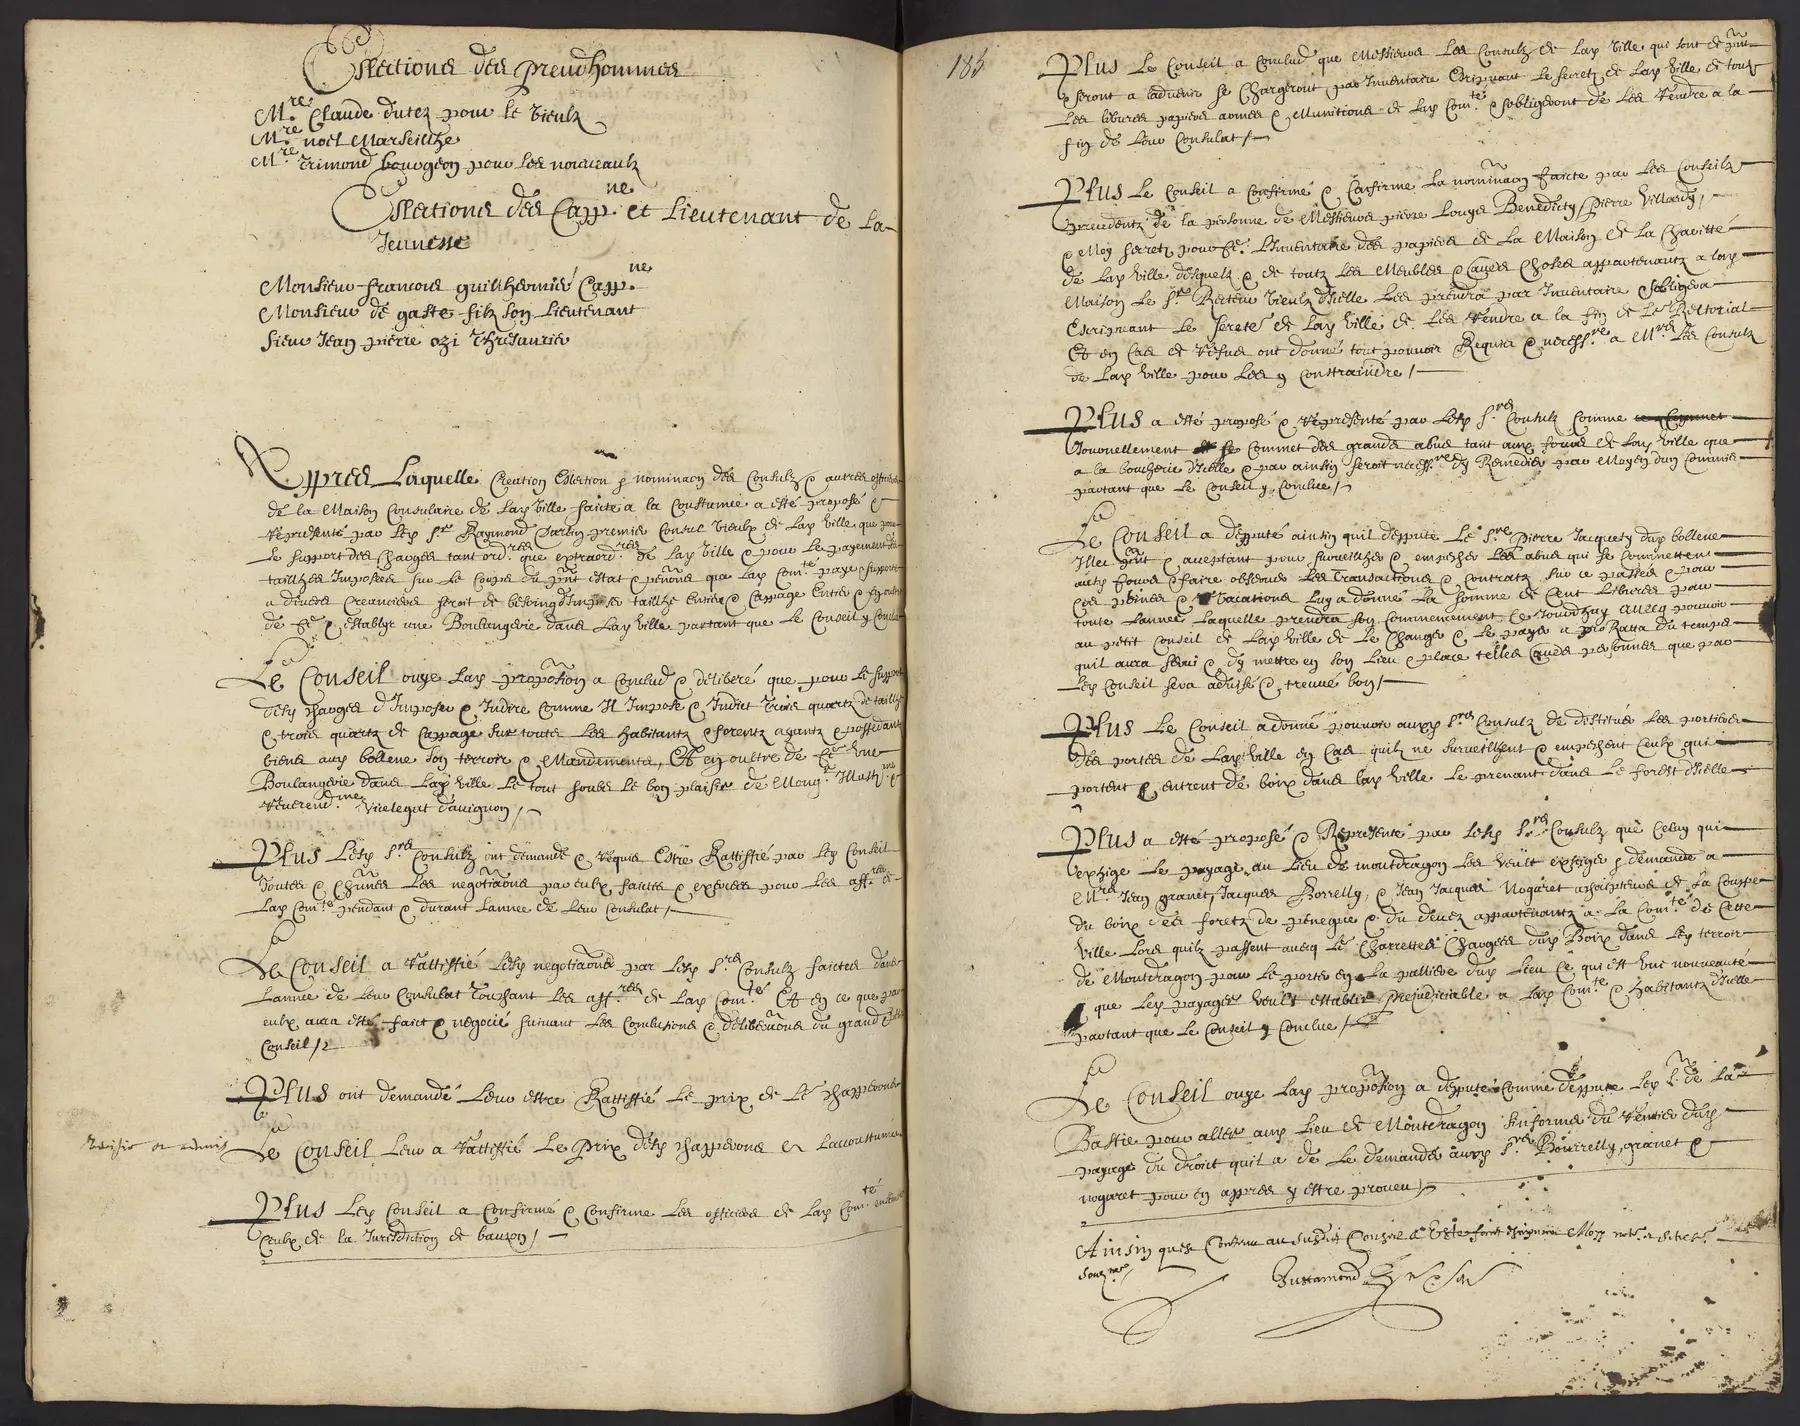 Eslections des preudhommes
Mre Claude dutez pour le vieulx
Mre noel Marseilhe
Mre trimond bourgeon pour les nouveaulx
Eslections des Cappne et Lieutenant de la
Jeunesse
Monsieur francois guilhermié Cappne
Monsieur de gaste filz son Lieutenant
sieur Jean pierre Thresaurie
Appres Laquelle Creation Eslection & nominaon des Consulz & autres
de la Maison Consulaire de Lad ville faicte a la Coustumée a esté proposé &
Représenté par led sr Raymond premier Consul vieulx de Lad ville que pour
Le support des Charges tant ordres que extraordres de Lad ville & pour Le payement des
tailhes Imposées sur Le Corps du pnt estat & que Lad Comté paye & supporte
a divers Creanciers seroit de besoing d'Imposer tailhe Entiere & Cappage Entier &
de fe & establyr une Boulangerie dans Lad ville partant que Le Conseil y
Le Conseil ouye Lad propotion a Conclud & deliberé que pour Le support
desd charges d'Imposer & Indire Comme Il Impose & Indict Trois quartz de tailhe
& trois quartz de Cappage sur toutz Les habitantz & forentz ayantz & possedantz
biens aud bollene son terroir & Mandements, Et en oultre de fe une
Boulangerie dans Lad ville Le tout soubz Le bon plaisir de Mongr Illustme &
Reverendme vicelegat d'avignon /
Plus Lesd srs Consulz ont demandé & Requis Estre Rattiffié par Led Conseil
Toutes & Chunes Les negotiaons par eulx faictes & exercées pour Les affres de
Lad Comté pendant & durant Lannee de Leur Consulat /
Le Conseil a rattiffié Lesd negotiaons par Lesd srs Consulz faictes dans
Lannée de Leur Consulat Touchant Les affres de Lad Comté Et en ce que par
eulx aura esté faict & negocié suivant Les Conclutions & deliberaons du grand &
Conseil /
Plus ont demandé Leur estre Rattiffié Le prix de Le chapperons
Le Conseil Leur a rattiffié Le Prix desd chapperons a Laccoustumée
Plus Led Conseil a Confirmé & Confirme Les officiers de Lad Comté
Ceulx de la Jurisdiction de bauzon /
185
Plus Le Conseil a Conclud que Messieurs Les Consulz de Lad ville qui sont de pnt
& seront a ladvenir se Chargeront par Inventaire Erignant Le secret de Lad ville de toutz
Les livres papiers armes & Munitions de Lad Comté & sobligeront de Les rendre a la
fin de Leur Consulat /
Plus Le Conseil a Confirmé & Confirme La nominaon faicte par Les Conseilz
precedentz de la personne de Messieurs pierre Louys Benedicty, Pierre Villardy,
& Moy secret pour fe L'Inventaire des papiers de La Maison de La Charitté
de Lad ville desquelz & de toutz Les Meubles & aues Choses appartenantz a lad
Maison Le sr Recteur vieulx d'Icelle Les prendra par Inventaire sobligera
Escrignant Le secret de Lad ville de Les rendre a la fin de Le Rectorial
Et en Cas de refus ont donné tout pouvoir Requis & necessre a Mrs Les Consulz
de Lad ville pour Les y Constraindre /
Plus a esté proposé & representé par Lesd srs Consulz Comme
Journellement se Commet des grands abus tant aux fours de Lad ville que
a la boucherie d'Icelle & par ainsin seroit necessre dy Remedier par Moyen dun Commis
partant que Le Conseil y Conclue /
Le Conseil a depputé ainsin quil depputte Le sre Pierre Jacquety dud bollene
Illec pnt & aceptant pour surveilher & empescher Les abus qui se Commettent
auxd fours & faire observer Les transactions & Contratz sur ce passés & pour
Ces peines & vacations Luy a donné La somme de Cent Livres pour
toute Lannée Laquelle prendra son Commencement Ce Jourdhuy avecq pouvoir
au petit Conseil de Lad ville de Le Changer & Le payer a pro Ratta du temps
quil aura servi & dy mettre en son Lieu & place telles aues personnes que par
Led Conseil sera advisé & treuvé bon /
Plus Le Conseil a donné pouvoir auxd srs Consulz de destituer Les portiers
des portes de Lad ville en Cas quilz ne surveilhent & empeschent Ceulx qui
portent & entrent de boix dans Lad ville Le prenant dans Le forest d'Icelle
Plus a esté proposé & Representé par Lesd srs Consulz que Celuy qui
exhige Le payage au Lieu de montdragon Les veult exhiger & demande a
Mrs Jean granet, Jacques Borrelly, & Jean Jacques Nogaret achepteurs de La Couppe
du boix des foretz de & du devez appartenantz a La Comté de Cette
ville Lors quilz passent avecq Le Charrettes Chargées dud Boix dans Led terroir
de Montdragon pour Le porter en La palliere dud Lieu Ce qui est une nouveauté
que Led payager veult establir prejudiciable a Lad Comté & habitantz d'Icelle
partant que Le Conseil y Conclue /
Le Conseil ouye Lad propotion a depputé Comme depputte Led sr de La
Bastie pour aller aud Lieu de Montdragon s'informer du Rentier dud
payage du droict quil a de Le demander auxd srs Bourrelly, granet &
nogaret pour en appres y estre proveu /
Ainsin ques Contenu au susdit Conseil a Esté Moy notre & secretre
soubzne /
Justamond